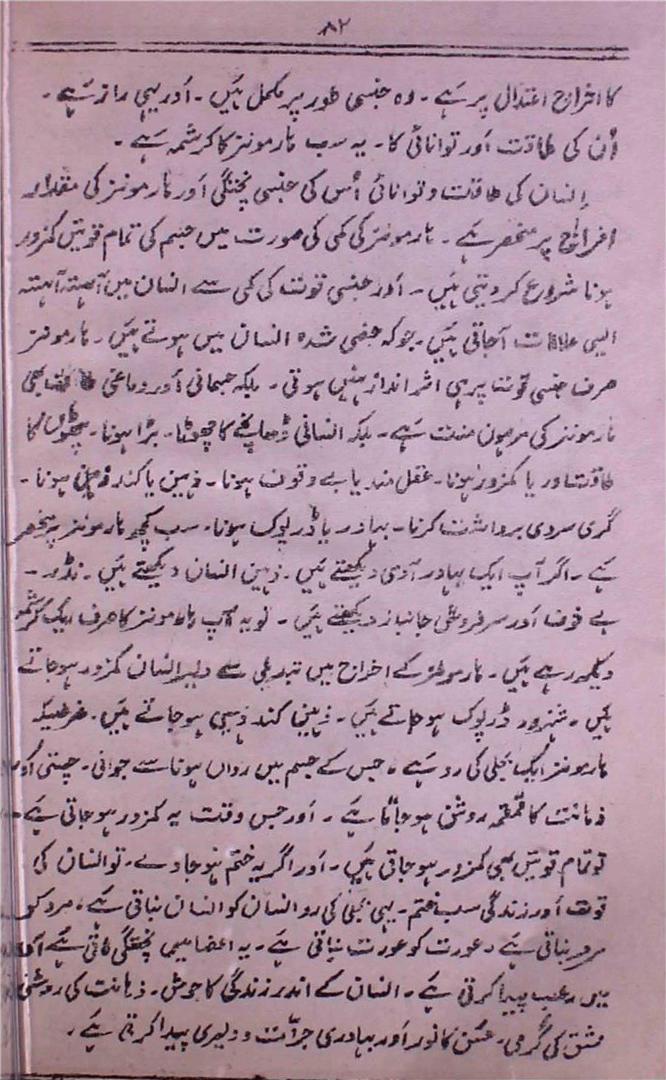 ۸۲
کا اخراج اعتدال پر ہے۔ وہ جنسی طور پر مکمل ہیں۔ اور یہی راز ہے۔
اُن کی طاقت اور توانائی کا۔ یہ سب ہارمونز کا کرشمہ ہے۔
انسان کی طاقت و توانائی اُس کی جنسی پختگی اور ہارمونز کی مقدار
افراج پر منحصر ہے۔ ہارمونز کی کمی کی صورت میں جسم کی تمام قوتیں کمزور
ہونا شروع کر دیتی ہیں۔ اور جنسی قوت کی کمی سے انسان میں آہستہ آہستہ
ایسی علامات آجاتی ہیں۔ جو کہ خصی شدہ انسان میں ہوتے ہیں۔ ہارمونز
صرف جنسی قوت پر ہی اثر انداز نہیں ہوتی۔ بلکہ جسمانی اور دماغی بھی
ہارمونز کی مرہون منت ہے۔ بلکہ انسانی ڈھانچے کا چھوٹا۔ بڑا ہونا۔ پٹھوں کا
طاقتور یا کمزور ہونا۔ عقل مند یا بے وقوف ہونا۔ ذہین یا کند ذہن ہونا۔
گرمی سردی برداشت کرنا۔ بہادر یا ڈرپوک ہونا۔ سب کچھ ہارمونز پر منحصر
ہے۔ اگر آپ ایک بہادر آدمی دیکھتے ہیں۔ ذہین انسان دیکھتے ہیں۔ نڈر۔
بے خوف اور سرفروش جانباز دیکھتے ہیں۔ تو یہ آپ ہارمونز کا صرف ایک کرشمہ
دیکھ رہے ہیں۔ ہارمونز کے اخراج میں تبدیلی سے دلیر انسان کمزور ہو جاتے
ہیں۔ شہزور ڈرپوک ہو جاتے ہیں۔ ذہین کند ذہین ہو جاتے ہیں۔ غرضیکہ
ہارمونز ایک بجلی کی رو ہے۔ جس کے جسم میں رواں ہونا سے جوانی۔ چستی اور
ذہانت کا قمقمہ روشن ہو جاتا ہے۔ اور جس وقت یہ کمزور ہو جاتی ہے۔
تو تمام قوتیں بھی کمزور ہو جاتی ہیں۔ اور اگر یہ ختم ہو جاوے۔ تو انسان کی
قوت اور زندگی سب ختم۔ یہی بجلی کی رو انسان کو انسان بناتی ہے، مرد کو
مرد بناتی ہے۔ عورت کو عورت بناتی ہے۔ یہ اعضا میں پختگی لاتی ہے
میں رعب پیدا کرتی ہے۔ انسان کے اندر زندگی کا جوش۔ ذہانت کی روشنی
عشق کی گرمی۔ کا نور اور بہادری جرأت و دلیری پیدا کرتی ہے۔